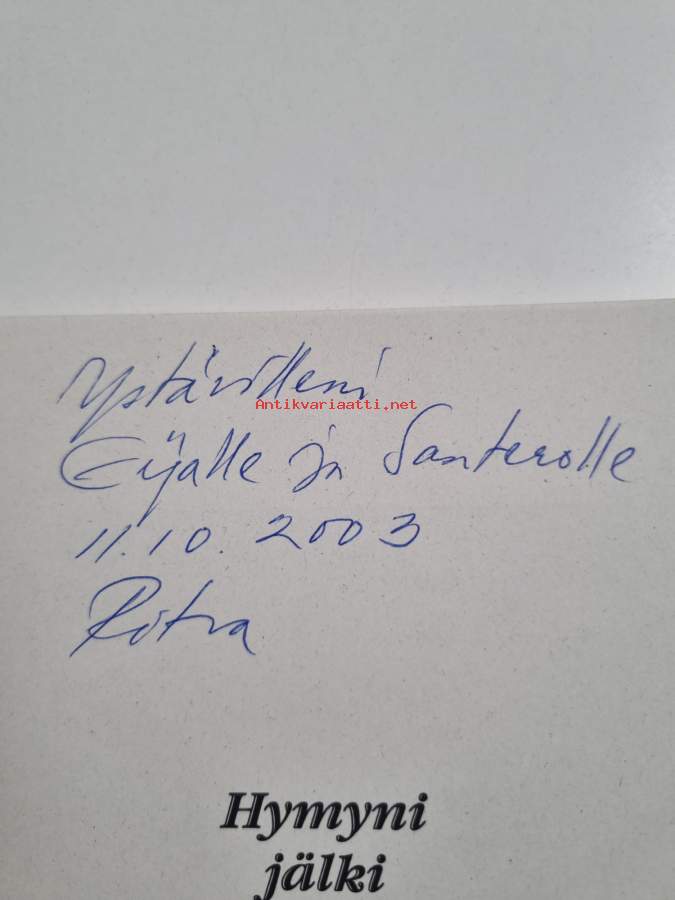 Ystävilleni
Antikvariaatti.net
Eijalle ja Santerolle
11.10.2003
Ritva
Hymyni
jälki